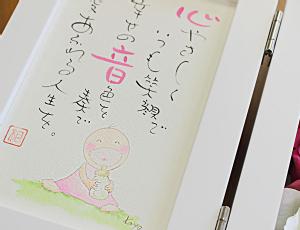 心やさしく
いつも笑顔で
幸せの音色を奏で
あふれる人生を。